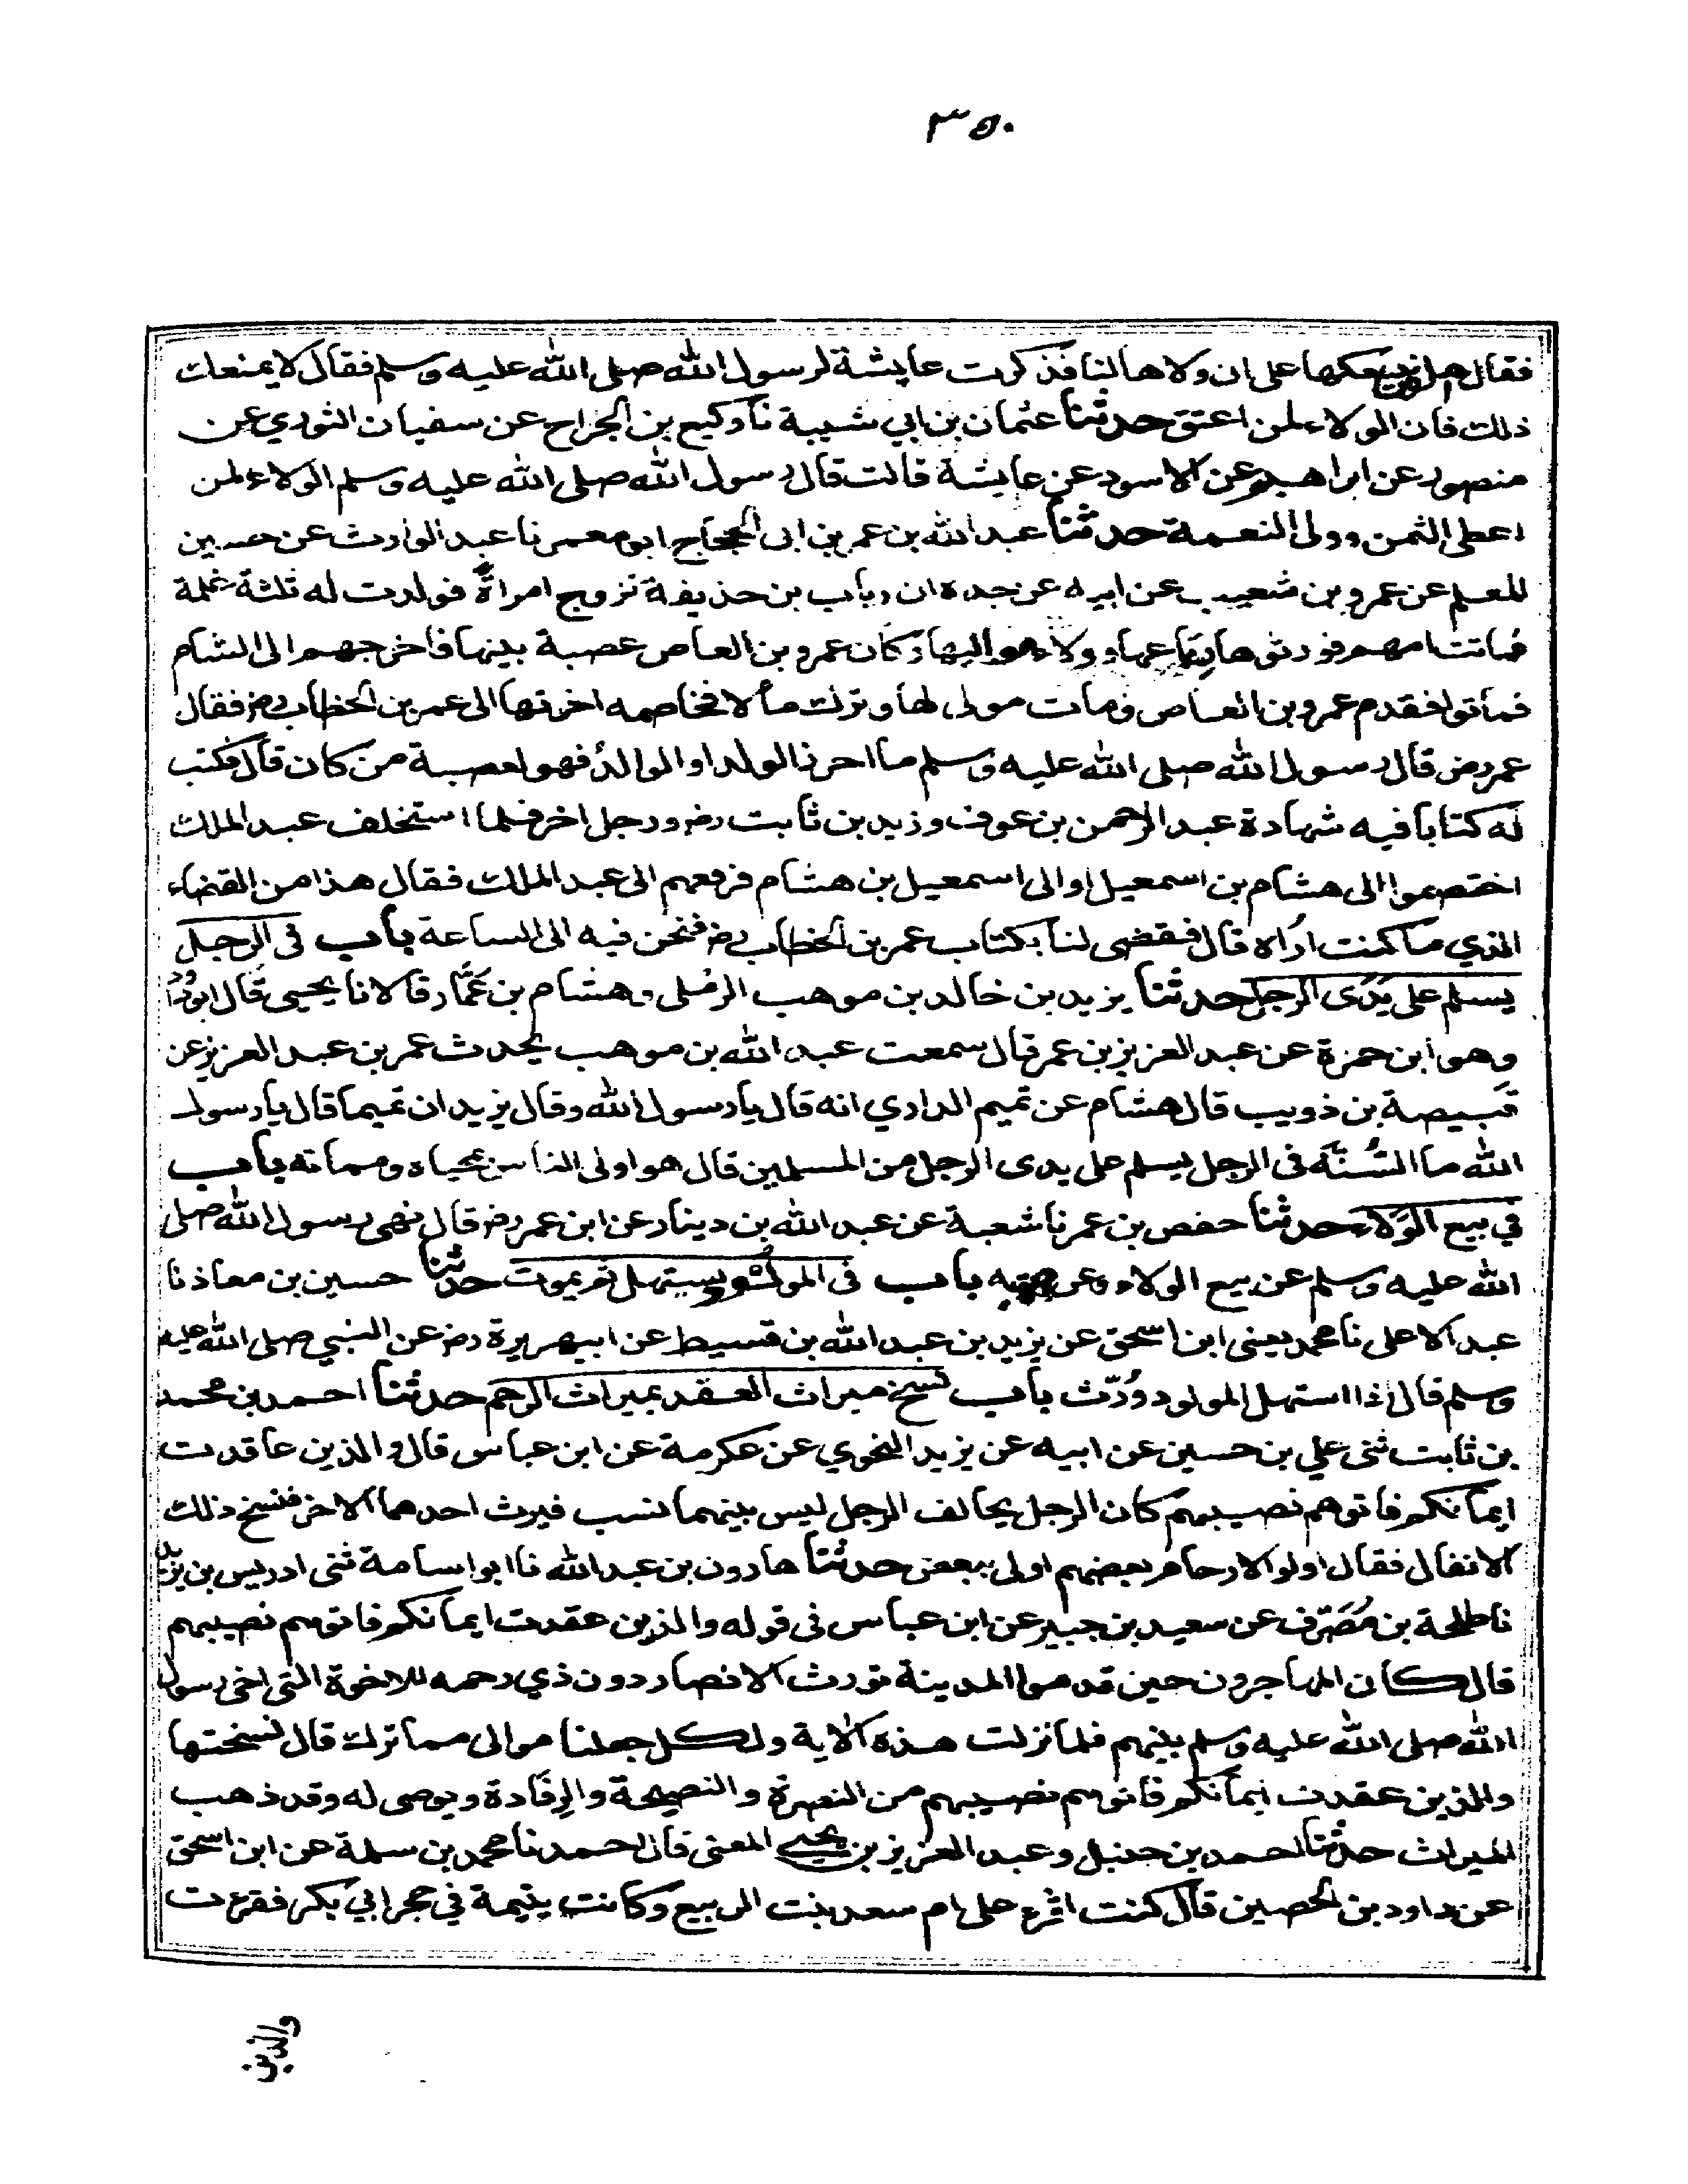 ٣٥٠
فقال اهلها نبيعكها على ان ولاها لنا فذكرت عايشة لرسول الله صلى الله عليه وسلم فقال لا يمنعك
ذلك فان الولاء لمن اعتق حدثنا عثمان بن ابي شيبة نا وكيع بن الجراح عن سفيان الثوري عن
منصور عن ابراهيم عن الاسود عن عايشة قالت قال رسول الله صلى الله عليه وسلم الولاء لمن
اعطى الثمن وولى النعمة حدثنا عبد الله بن عمر بن ابى الحجاج ابو معمر نا عبد الوارث عن حسين
المعلم عن عمرو بن شعيب عن ابيه عن جده ان رياب بن حذيفة تزوج امراة فولدت له ثلثة غلمة
فماتت امهم فورثوها رباعها وولاء مواليها وكان عمرو بن العاص عصبة بنيها فاخرجهم الى الشام
فماتوا فقدم عمرو بن العاص ومات مولى لها وترك مالا فخاصمه اخوتها الى عمر بن الخطاب رضـ فقال
عمر رضـ قال رسول الله صلى الله عليه وسلم ما احرز الولد او الوالد فهو لعصبة من كان قال فكتب
له كتابا فيه شهادة عبد الرحمن بن عوف وزيد بن ثابت رضـ ورجل اخر فلما استخلف عبد الملك
اختصموا الى هشام بن اسمعيل او الى اسمعيل بن هشام فرفعهم الى عبد الملك فقال هذا من القضاء
الذي ما كنت اراه قال فقضى لنا بكتاب عمر بن الخطاب رضـ فنحن فيه الى الساعة باب فى الرجل
يسلم على يدى الرجل حدثنا يزيد بن خالد بن موهب الرملى وهشام بن عمار قالا نا يحيى قال ابو داود
وهو ابن حمزة عن عبد العزيز بن عمر قال سمعت عبد الله بن موهب يحدث عمر بن عبد العزيز عن
قبيصة بن ذويب قال هشام عن تميم الدارى انه قال يا رسول الله وقال يزيد ان تميما قال يا رسول
الله ما السُّنَّة فى الرجل يسلم على يدى الرجل من المسلمين قال هو اولى الناس بمحياه ومماته باب
في بيع الوَلاء حدثنا حفص بن عمر نا شعبة عن عبد الله بن دينار عن ابن عمر رضـ قال نهى رسول الله صلى
الله عليه وسلم عن بيع الولاء وعن هبته باب فى المولود يستهل ثم يموت حدثنا حسين بن معاذ نا
عبد الاعلى نا محمد يعنى ابن اسحق عن يزيد بن عبد الله بن قسيط عن ابيهريرة رضـ عن النبي صلى الله عليه
وسلم قال اذا استهل المولود وُرِّث باب نسخ ميراث العقد بميراث الرحم حدثنا احمد بن محمد
بن ثابت ثنى علي بن حسين عن ابيه عن يزيد النحوي عن عكرمة عن ابن عباس قال والذين عاقدت
ايمانكم فاتوهم نصيبهم كان الرجل يحالف الرجل ليس بينهما نسب فيرث احدهما الاخر فنسخ ذلك
الانفال فقال اولوا الارحام بعضهم اولى ببعض حدثنا هارون بن عبد الله نا ابو اسامة ثنى ادريس بن يزيد
نا طلحة بن مُصَرِّف عن سعيد بن جبير عن ابن عباس فى قوله والذين عقدت ايمانكم فاتوهم نصيبهم
قال كان المهاجرون حين قدموا المدينة تورث الانصار دون ذي رحمه للاخوة التى اخى رسول
الله صلى الله عليه وسلم بينهم فلما نزلت هذه الاية ولكل جعلنا موالى مما ترك قال نسختها
والذين عقدت ايمانكم فاتوهم نصيبهم من النصرة والنصيحة والرفادة ويوصى له وقد ذهب
الميراث حدثنا احمد بن حنبل وعبد العزيز بن يحيى المعنى قال احمد نا محمد بن سلمة عن ابن اسحق
عن داود بن الحصين قال كنت اقرء على ام سعد بنت الربيع وكانت يتيمة في حجر ابي بكر فقرءت
والذين